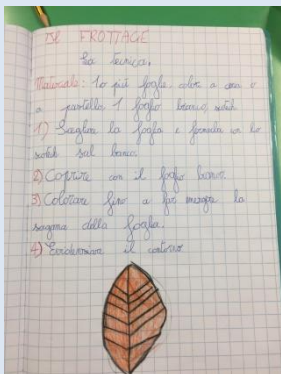 IL FROTTAGE
La tecnica.
Materiale: 1 o più foglie, colori a cera o
a pastello 1 foglio bianco, scotch
1) Scegliere la foglia e fermarla con lo
scotch sul banco.
2) Coprire con il foglio bianco.
3) Colorare fino a far emergere la
sagoma della foglia.
4) Evidenziare il contorno